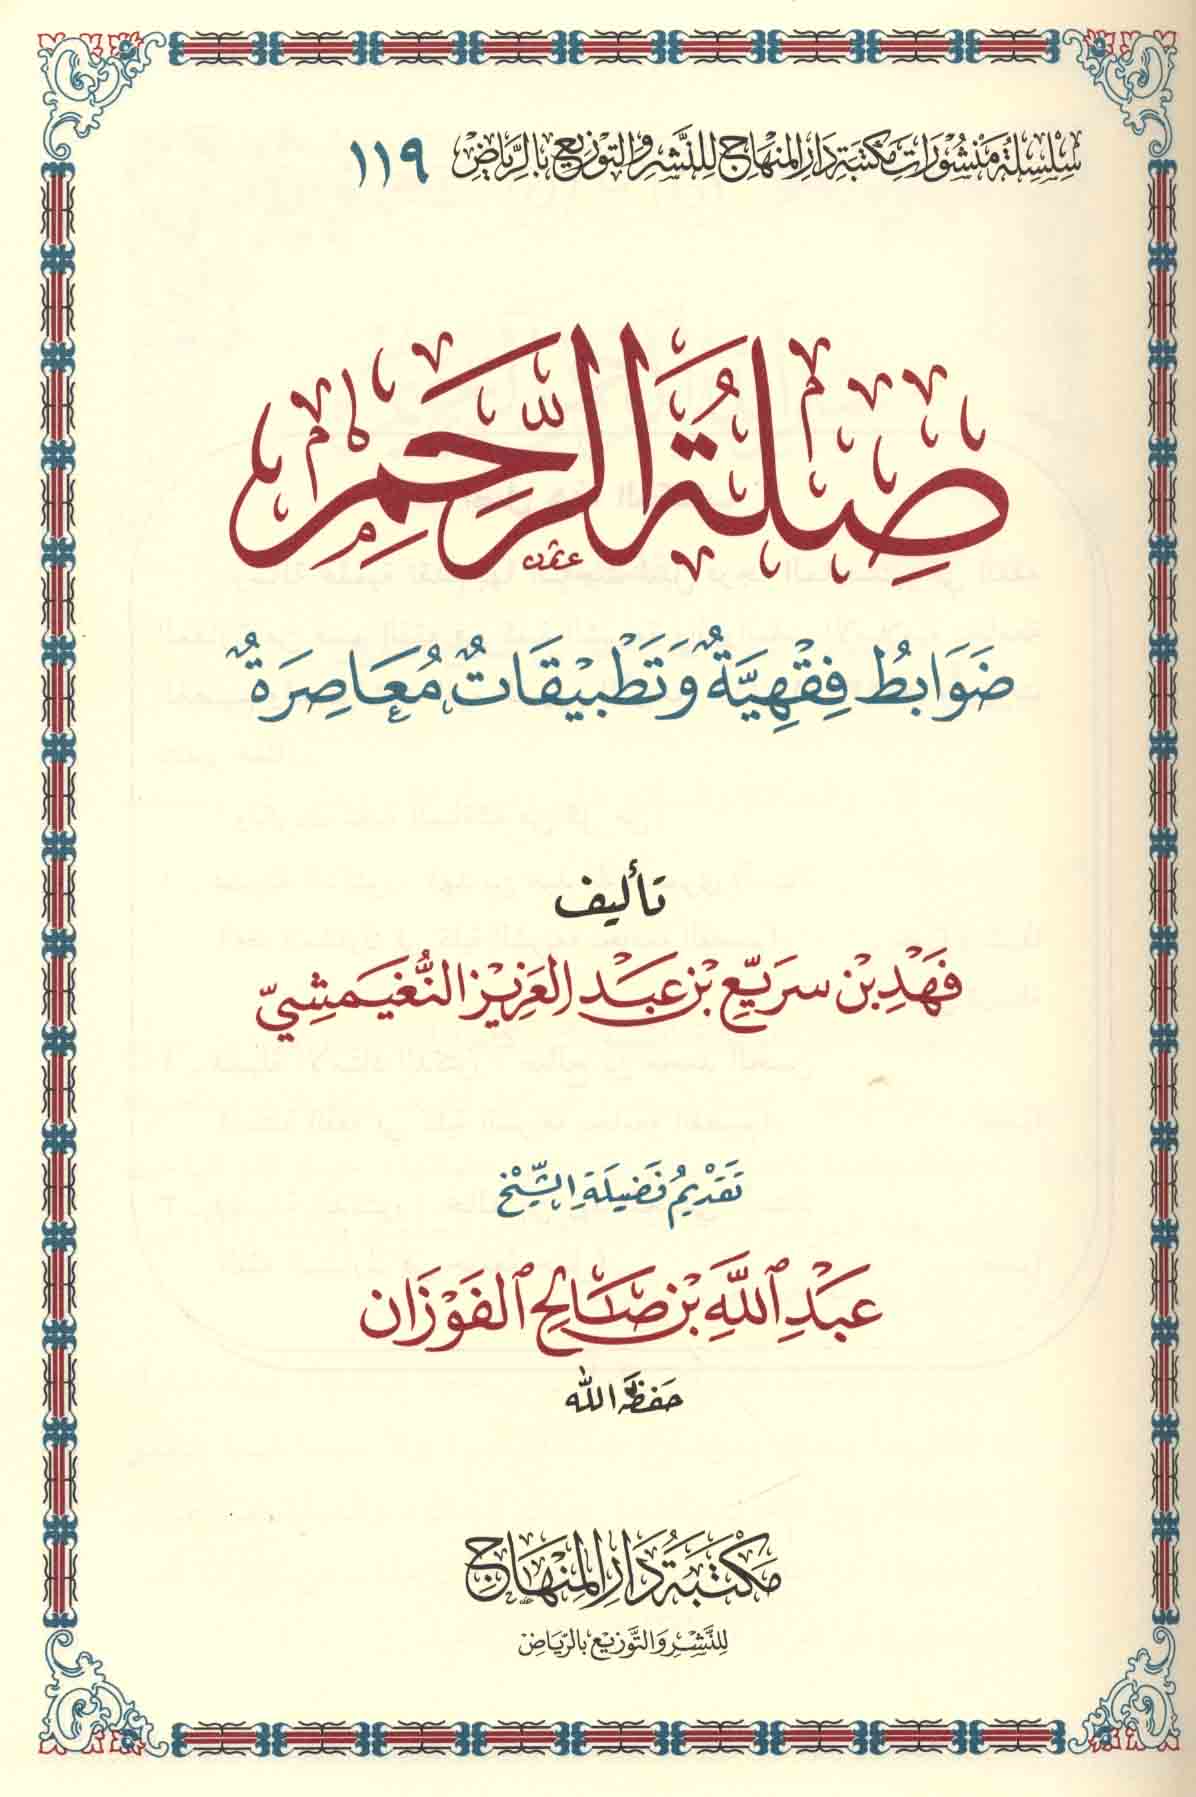 سِلْسِلَةُ مَنْشُورَاتِ مَكْتَبَةِ دَارِ المِنْهَاجِ لِلنَّشْرِ وَالتَّوْزِيعِ بِالرِّيَاضِ ١١٩
صِلَةُ الرَّحِمِ
ضَوَابِطُ فِقْهِيَّةٌ وَتَطْبِيقَاتٌ مُعَاصِرَةٌ
تأليف
فَهْدِ بْنِ سرَيِّعِ بْنِ عَبْدِ العَزِيْزِ النُّغَيمَشِيِّ
تَقْدِيمُ فَضِيلَةِ الشَّيْخِ
عَبْدِ اللَّهِ بْنِ صَالِحٍ الفَوْزَان
حَفِظَهُ الله
مَكْتَبَةُ دَارِ المِنْهَاجِ
لِلنَّشْرِ وَالتَّوْزِيْعِ بِالرِّيَاض